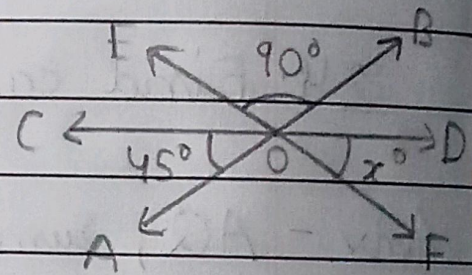 E
90°
B
C
D
45°
O
x°
A
F